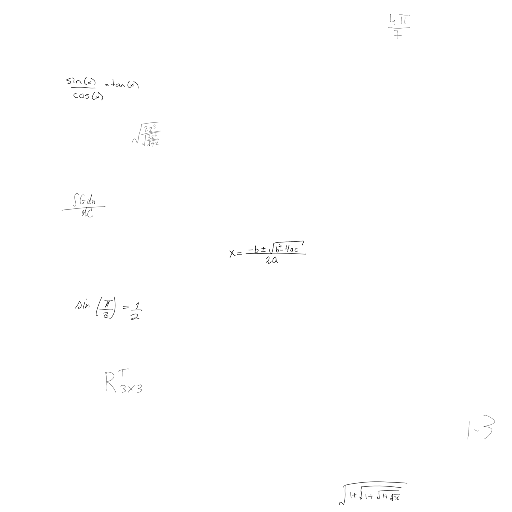 4π/7
sin(α)/cos(α) = tan(α)
∫Gdn/dC
x = (-b ± √(b² - 4ac))/2a
sin(π/6) = 1/2
R^T_{3×3}
1-3
√(1+√(1+√(1+√x)))